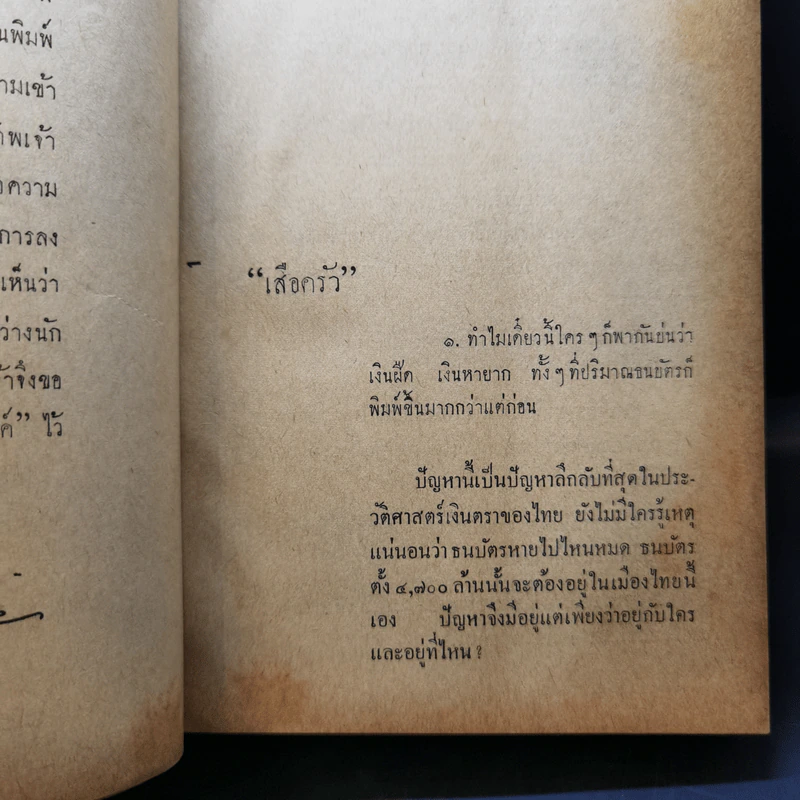 นพิมพ์
ามเข้า
พเจ้า
ความ
การลง
เห็นว่า
ว่างนัก
จึงขอ
ค์” ไว้
“เสือครัว”
๑. ทำไมเดี๋ยวนี้ใคร ๆ ก็พากันบ่นว่า
เงินฝืด เงินหายาก ทั้ง ๆ ที่ปริมาณธนบัตรก็
พิมพ์ขึ้นมากกว่าแต่ก่อน
ปัญหานี้เป็นปัญหาลึกลับที่สุดในประ-
วัติศาสตร์เงินตราของไทย ยังไม่มีใครรู้เหตุ
แน่นอนว่า ธนบัตรหายไปไหนหมด ธนบัตร
ตั้ง ๔,๗๐๐ ล้านนั้นจะต้องอยู่ในเมืองไทยนี้
เอง ปัญหาจึงมีอยู่แต่เพียงว่าอยู่กับใคร
และอยู่ที่ไหน ?